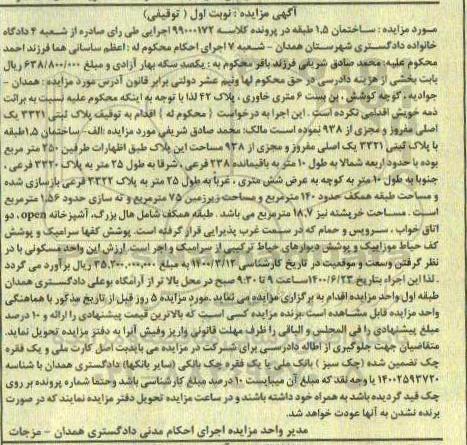 آگهی مزایده : نوبت اول ( توقیفی)
مـورد مزایده : ساختمان ۱.۵ طبقه در پرونده کلاسه ۹۹۰۰۰۱۷۲ اجرایی طی رای صادره از شعبه ۴ دادگاه
خانواده دادگستری شهرستان همدان – شعبه ۷ اجرای احکام محکوم له : اعظم ساسانی هما فرزند احمد
محکوم علیه: محمد صادق شریفی فرزند باقر محکوم به : یکصد سکه بهار آزادی و مبلغ ۶۳۸/۸۰۰/۰۰۰ ریال
بابت بخشی از هزینه دادرسی در حق محکوم لها ونیم عشر دولتی برابر قانون آدرس مورد مزایده : همدان –
جوادیه ، کوچه کوشش ، بن بست ۶ متری خاوری ، پلاک ۴۲ لذا با توجه به اینکه محکوم علیه نسبت به برائت
ذمه خویش اقدامی نکرده است . این اجرا به درخواست ( محکوم له ) اقدام به توقیف پلاک ثبتی ۳۳۲۱ یک
اصلی مفروز و مجزی از ۹۳۸ نموده اسـت مالک: محمد صادق شریفی مورد مزایده :الف- ساختمان ۱.۵طبقه
با پلاک ثبتی ۳۳۲۱ یک اصلی مفروز و مجزی از ۹۳۸ مساحت این پلاک طبق اظهارات طرفین ۲۵۰ متر مربع
بوده با حدود اربعه شمالا به طول ۱۰ متر به باقیمانده ۲۳۸ فرعی ، شرقا به طول ۲۵ متر به پلاک ۳۳۲۰ فرعی ،
جنوبا به طول ۱۰ متر به کوچه به عرض شش متری ، غرباً به طول ۲۵ متر به پلاک ۳۳۲۲ فرعی بازسازی شده
و مساحت طبقه همکف حدود ۱۴۰ مترمربع و مساحت زیرزمین ۷۵ مترمربع و ته سازی حدود ۱.۵۶ مترمربع
اسـت . مسـاحت خرپشته نیز ۱۸.۷ مترمربع می باشد . طبقه همکف شامل هال بزرگ، آشپزخانه open ، دو
اتاق خواب ، سرویس و حمام که در سمت غرب پذیرایی قرار گرفته است. پوشش کفها سرامیک و پوشش
کف حیاط موزاییک و پوشش دیوارهای حیاط ترکیبی از سرامیک و آجر است. ارزش این واحد مسکونی با در
نظر گرفتن وسعت و موقعیت در تاریخ کارشناسی ۱۴۰۰/۳/۱۲ به مبلغ ۳۵.۲۰۰.۰۰۰.۰۰۰ ریال برآورد می گردد
. لذا این اجراء بتاریخ ۱۴۰۰/۶/۲۳ساعت ۹ تا ۹:۳۰ صبح در محل بالا تر از آرامگاه بوعلی دادگستری همدان
طبقه اول واحد مزایده اقدام به برگزاری مزایده می نماید .مورد مزایده ۵ روز قبل از تاریخ مذکور با هماهنگی
واحد مزایده قابل مشاهده است .برنده مزایده کسی اسـت که بالاترین قیمت پیشنهادی را ارائه و ۱۰ درصد
مبلغ پیشنهادی را فی المجلس و الباقی را ظرف مهلت قانونی واریز وفیش آنرا به دفتر مزایده تحویل نماید.
متقاضیان جهت جلوگیری از اطاله دادرسـی برای شـرکت در مزایده می بایدبت اصل کارت ملی و یک فقره
چک تضمین شده (چک سبز ) بانک ملی یا یک فقره چک بانکی (سایر بانکها) دادگستری همدان با شناسه
۱۴۰۰۲۵۹۳۷۲۰ یا وجه نقد که مبلغ آن میبایست ۱۰ درصد مبلغ کارشناسی باشد وحتما شماره پرونده بر روی
چک قید گردیده باشد به همراه خود داشته باشند و در ساعت مزایده تحویل دفتر مزایده نمایند که در صورت
برنده نشدن به آنها عودت خواهد شد.
مدیر واحد مزایده اجرای احکام مدنی دادگستری همدان – مزجات